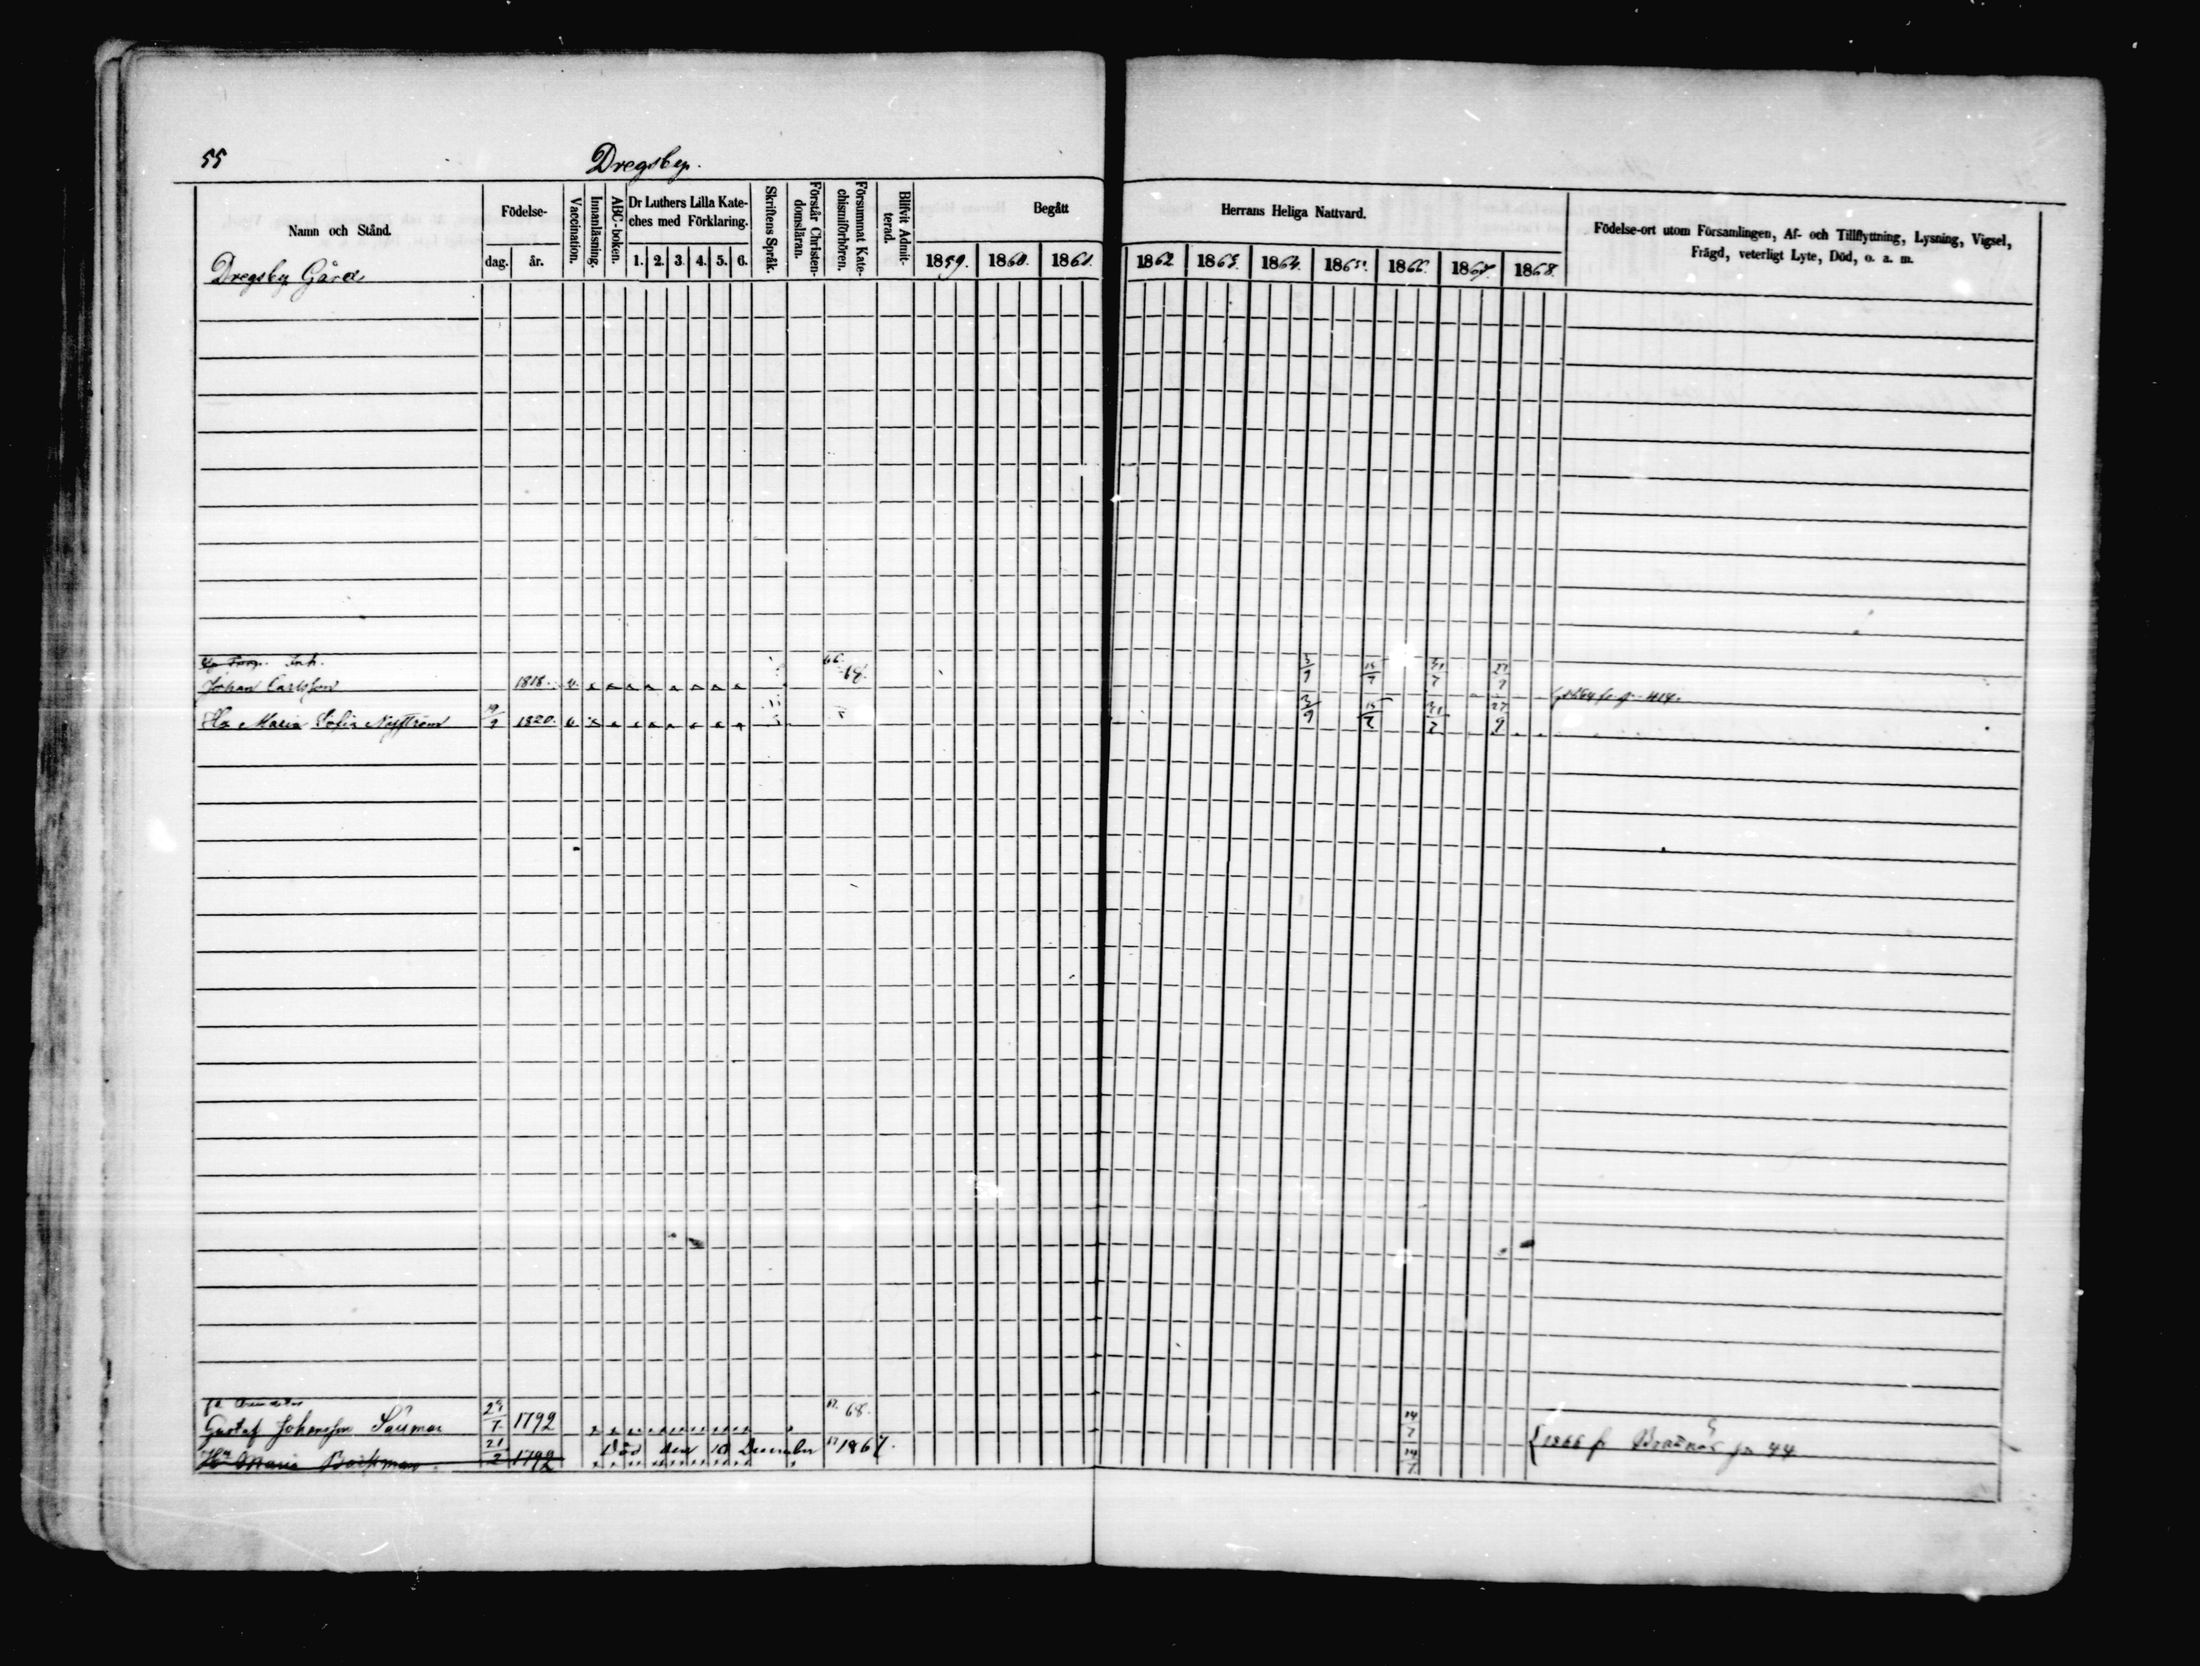 55
Dregsby.
Namn och Stånd.
Födelse-
dag. år.
Vaccination.
Innanläsning.
ABC-boken.
Dr Luthers Lilla Kate-
ches med Förklaring.
1. 2. 3. 4. 5. 6.
Skriftens Språk.
Förstår Christen-
domsläran.
Försummat Kate-
chismiförhören.
Blifvit Admit-
terad.
Begått
Herrans Heliga Nattvard.
1859. 1860. 1861. 1862. 1863. 1864. 1865. 1866. 1867. 1868.
Födelse-ort utom Församlingen, Af- och Tillflyttning, Lysning, Vigsel,
Frägd, veterligt Lyte, Död, o. a. m.
Dregsby Gård
Inh.
Johan Carlsson 1818. v. 3/9 31/7 1864 fr. p. 414.
Hu Maria Sofia Nyström 19/9 1820. v. 3/9 31/7 27/9
Gustaf Johansson 1792 68. 14/7
Hu Maria 21/2 1792 Död den 10 December 1867. 14/7 1866 fr p. 44